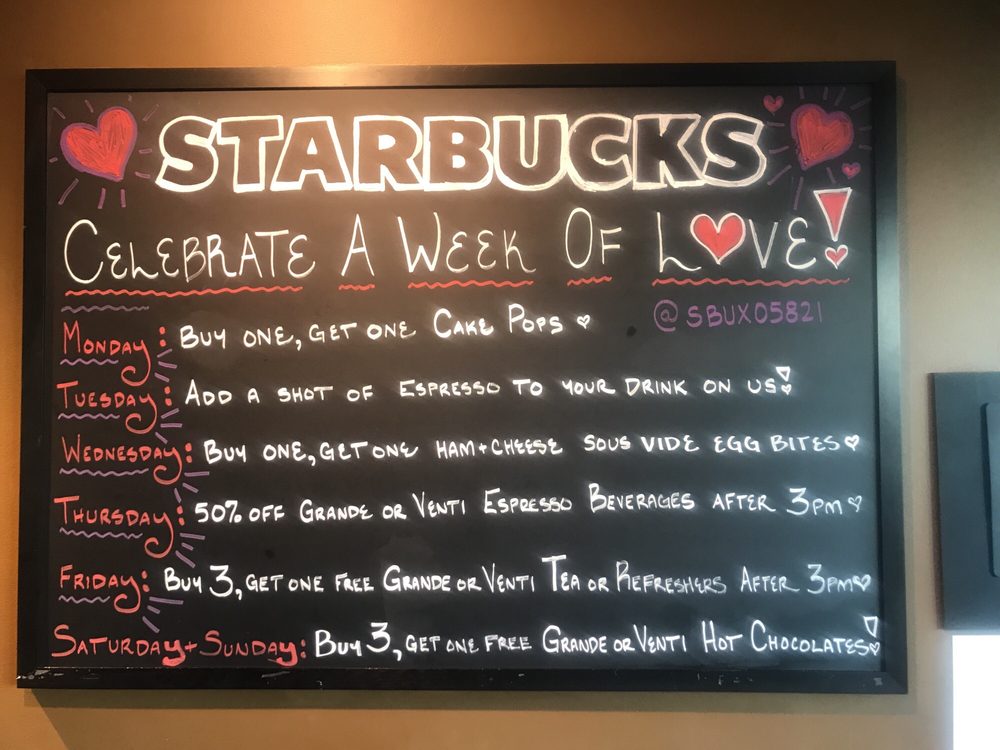 STARBUCKS
CELEBRATE A WEEK OF LOVE!
@SBUX05821
MONDAY: BUY ONE, GET ONE CAKE POPS
TUESDAY: ADD A SHOT OF ESPRESSO TO YOUR DRINK ON US!
WEDNESDAY: BUY ONE, GET ONE HAM+CHEESE SOUS VIDE EGG BITES
THURSDAY: 50% OFF GRANDE OR VENTI ESPRESSO BEVERAGES AFTER 3PM
FRIDAY: BUY 3, GET ONE FREE GRANDE OR VENTI TEA OR REFRESHERS AFTER 3PM
SATURDAY+SUNDAY: BUY 3, GET ONE FREE GRANDE OR VENTI HOT CHOCOLATES!